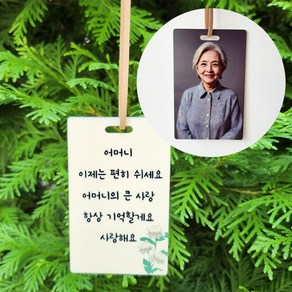 어머니
이제는 편히 쉬세요
어머니의 큰 사랑
항상 기억할게요
사랑해요